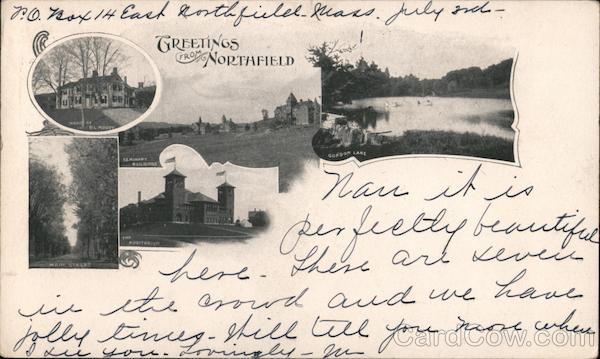 P.O. Box 14 East Northfield - Mass. July 3rd -
GREETINGS
FROM
NORTHFIELD
SEMINARY
BUILDINGS
GORDON LAKE
THE
AUDITORIUM
MAIN STREET
Nan it is
perfectly beautiful
here - There are seven
in the crowd and we have
jolly times - Will tell you more when
I see you - Lovingly - M
CardCow.com